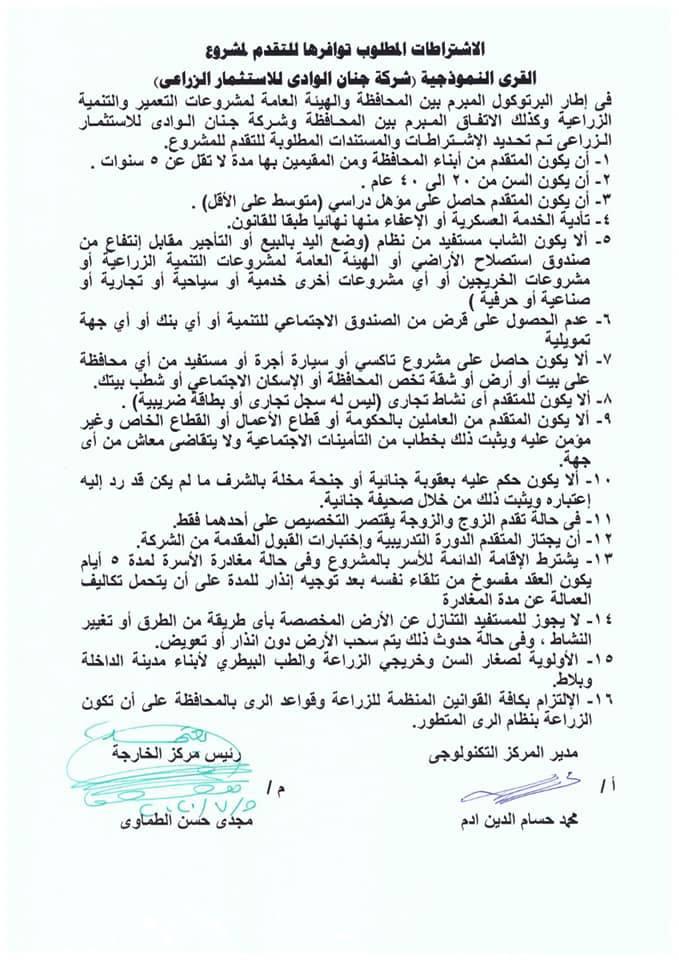 الاشتراطات المطلوب توافرها للتقدم لمشروع
القرى النموذجية (شركة جنان الوادى للاستثمار الزراعى)
فى إطار البرتوكول المبرم بين المحافظة والهيئة العامة لمشروعات التعمير والتنمية
الزراعية وكذلك الاتفاق المبرم بين المحافظة وشركة جنان الوادى للاستثمار
الزراعى تم تحديد الإشتراطات والمستندات المطلوبة للتقدم للمشروع.
١- أن يكون المتقدم من أبناء المحافظة ومن المقيمين بها مدة لا تقل عن ٥ سنوات .
٢- أن يكون السن من ٢٠ الى ٤٠ عام .
٣- أن يكون المتقدم حاصل على مؤهل دراسي (متوسط على الأقل) .
٤- تأدية الخدمة العسكرية أو الإعفاء منها نهائيا طبقا للقانون.
٥- ألا يكون الشاب مستفيد من نظام (وضع اليد بالبيع أو التأجير مقابل إنتفاع من
صندوق استصلاح الأراضي أو الهيئة العامة لمشروعات التنمية الزراعية أو
مشروعات الخريجين أو أي مشروعات أخرى خدمية أو سياحية أو تجارية أو
صناعية أو حرفية )
٦- عدم الحصول على قرض من الصندوق الاجتماعي للتنمية أو أي بنك أو أي جهة
تمويلية
٧- ألا يكون حاصل على مشروع تاكسي أو سيارة أجرة أو مستفيد من أي محافظة
على بيت أو أرض أو شقة تخص المحافظة أو الإسكان الاجتماعي أو شطب بيتك.
٨- ألا يكون للمتقدم أى نشاط تجارى (ليس له سجل تجارى أو بطاقة ضريبية) .
٩- ألا يكون المتقدم من العاملين بالحكومة أو قطاع الأعمال أو القطاع الخاص وغير
مؤمن عليه ويثبت ذلك بخطاب من التأمينات الاجتماعية ولا يتقاضى معاش من أى
جهة.
١٠- ألا يكون حكم عليه بعقوبة جنائية أو جنحة مخلة بالشرف ما لم يكن قد رد إليه
إعتباره ويثبت ذلك من خلال صحيفة جنائية.
١١- فى حالة تقدم الزوج والزوجة يقتصر التخصيص على أحدهما فقط.
١٢- أن يجتاز المتقدم الدورة التدريبية وإختبارات القبول المقدمة من الشركة.
١٣- يشترط الإقامة الدائمة للأسر بالمشروع وفى حالة مغادرة الأسرة لمدة ٥ أيام
يكون العقد مفسوخ من تلقاء نفسه بعد توجيه إنذار للمدة على أن يتحمل تكاليف
العمالة عن مدة المغادرة
١٤- لا يجوز للمستفيد التنازل عن الأرض المخصصة بأى طريقة من الطرق أو تغيير
النشاط ، وفى حالة حدوث ذلك يتم سحب الأرض دون انذار أو تعويض.
١٥- الأولوية لصغار السن وخريجي الزراعة والطب البيطري لأبناء مدينة الداخلة
وبلاط.
١٦- الإلتزام بكافة القوانين المنظمة للزراعة وقواعد الرى بالمحافظة على أن تكون
الزراعة بنظام الرى المتطور.
مدير المركز التكنولوجى
رئيس مركز الخارجة
أ /
م /
٢٠٢٠/٧/٥
محمد حسام الدين ادم
مجدى حسن الطماوى